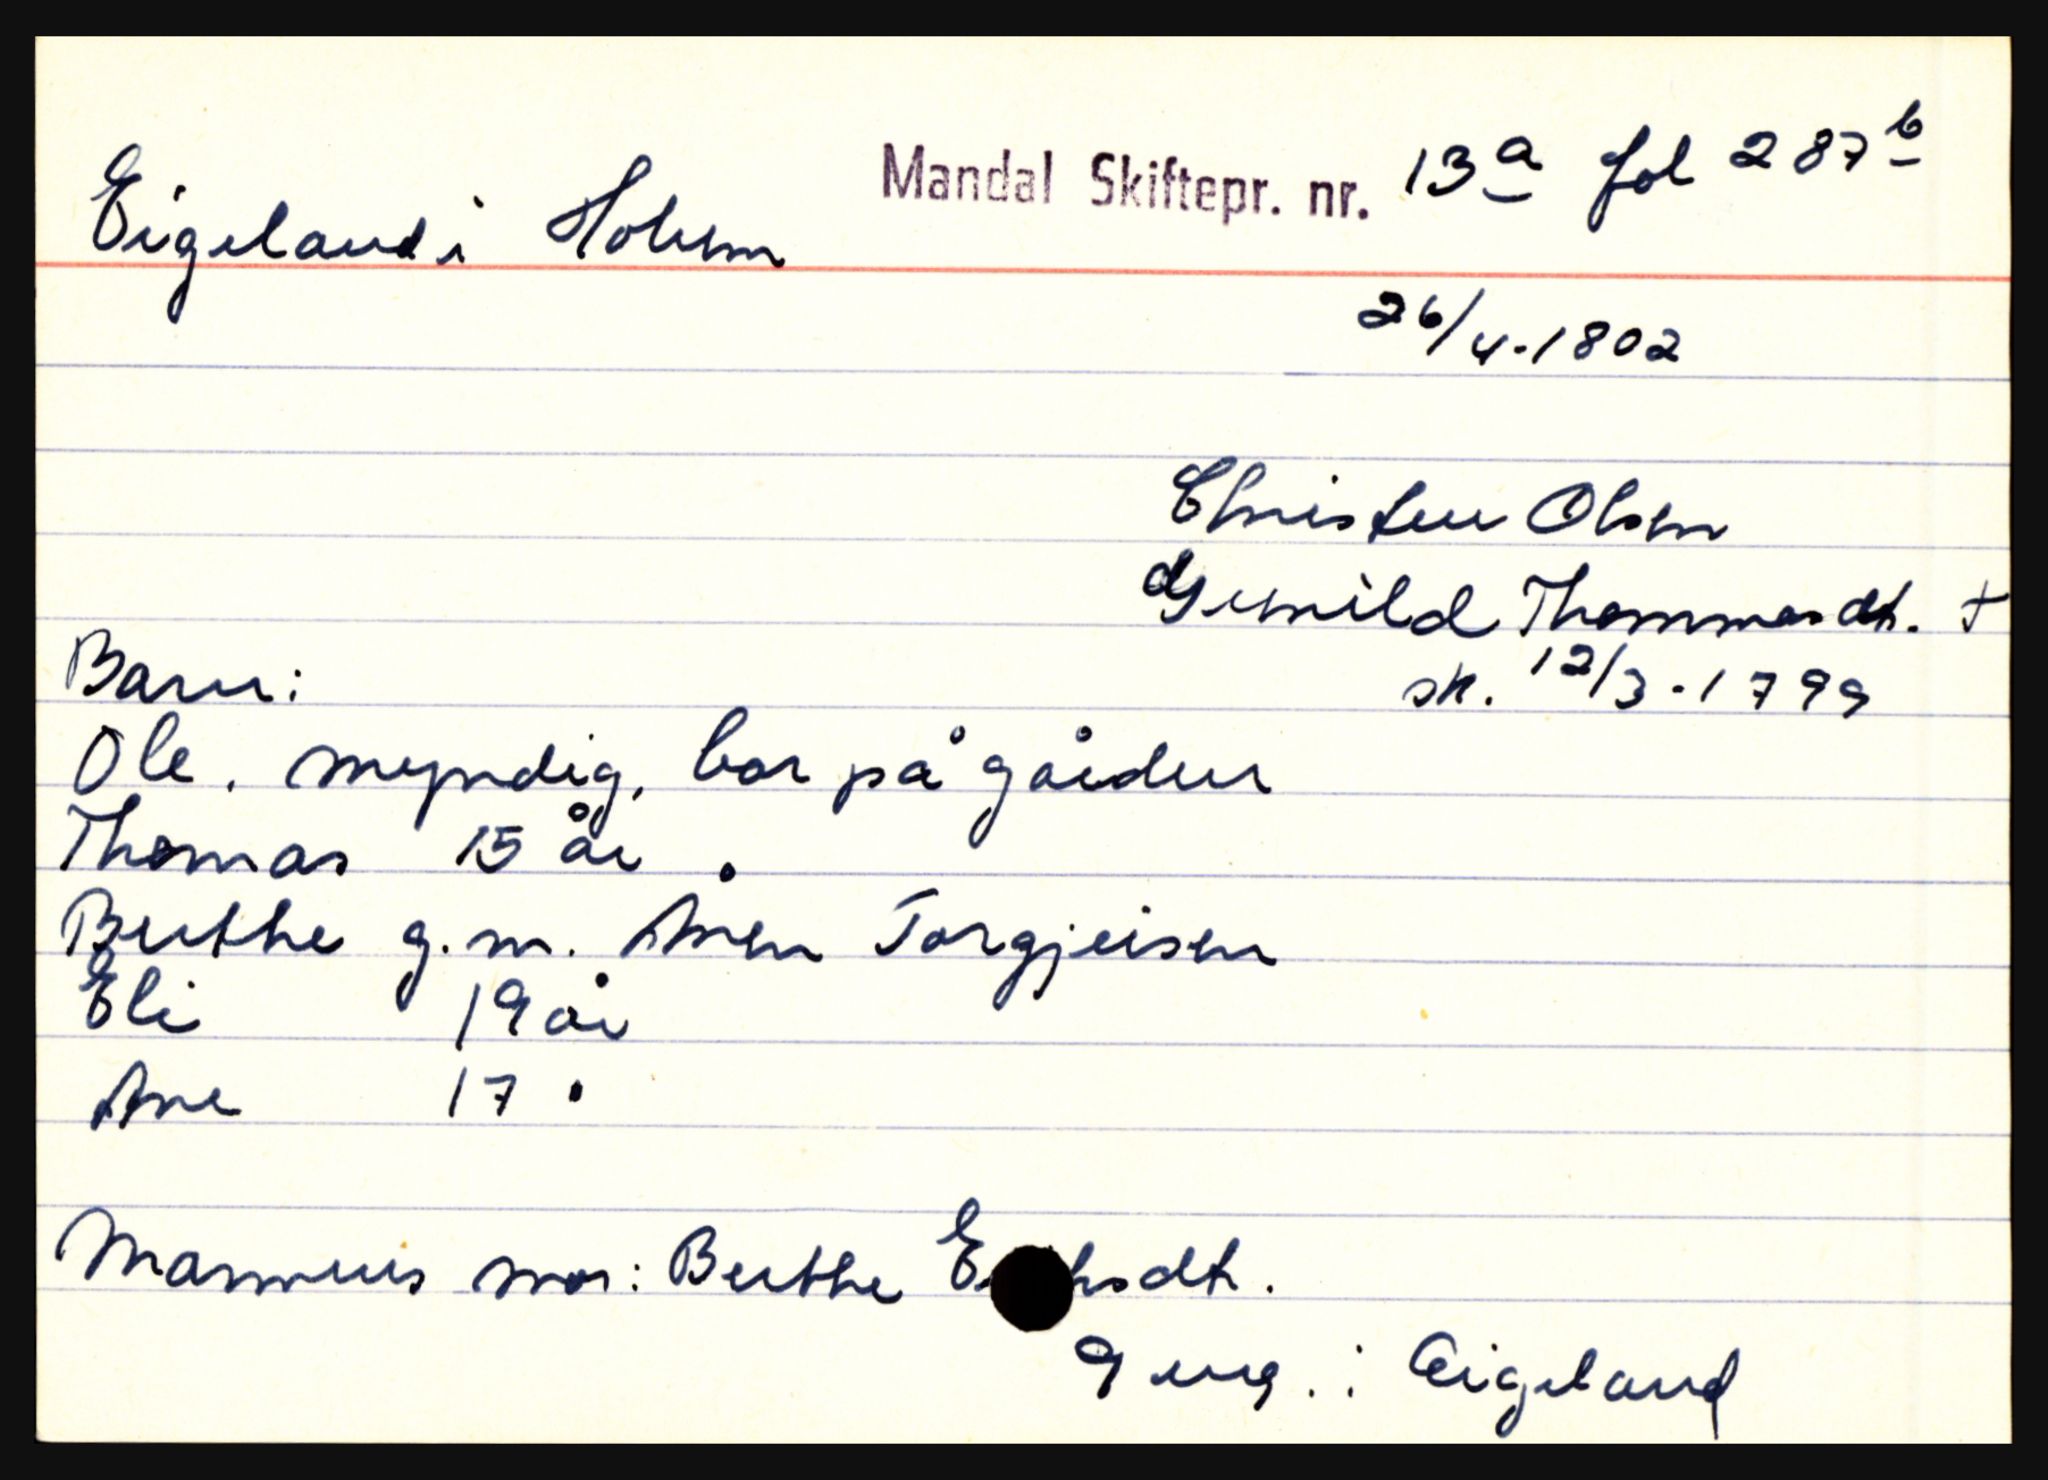 Mandal Skiftepr. nr. 13a fol 287b
Eigeland i Holum
26/4-1802
Christen Olsen
Gunild Thommesdt. +
sk. 12/3-1799
Barn:
Ole, myndig, bor på gården
Thomas 15 år
Berthe g.m. Ånen Torgjeisen
Eli 19 år
Ane 17 "
Mannens mor: Berthe
Eigeland